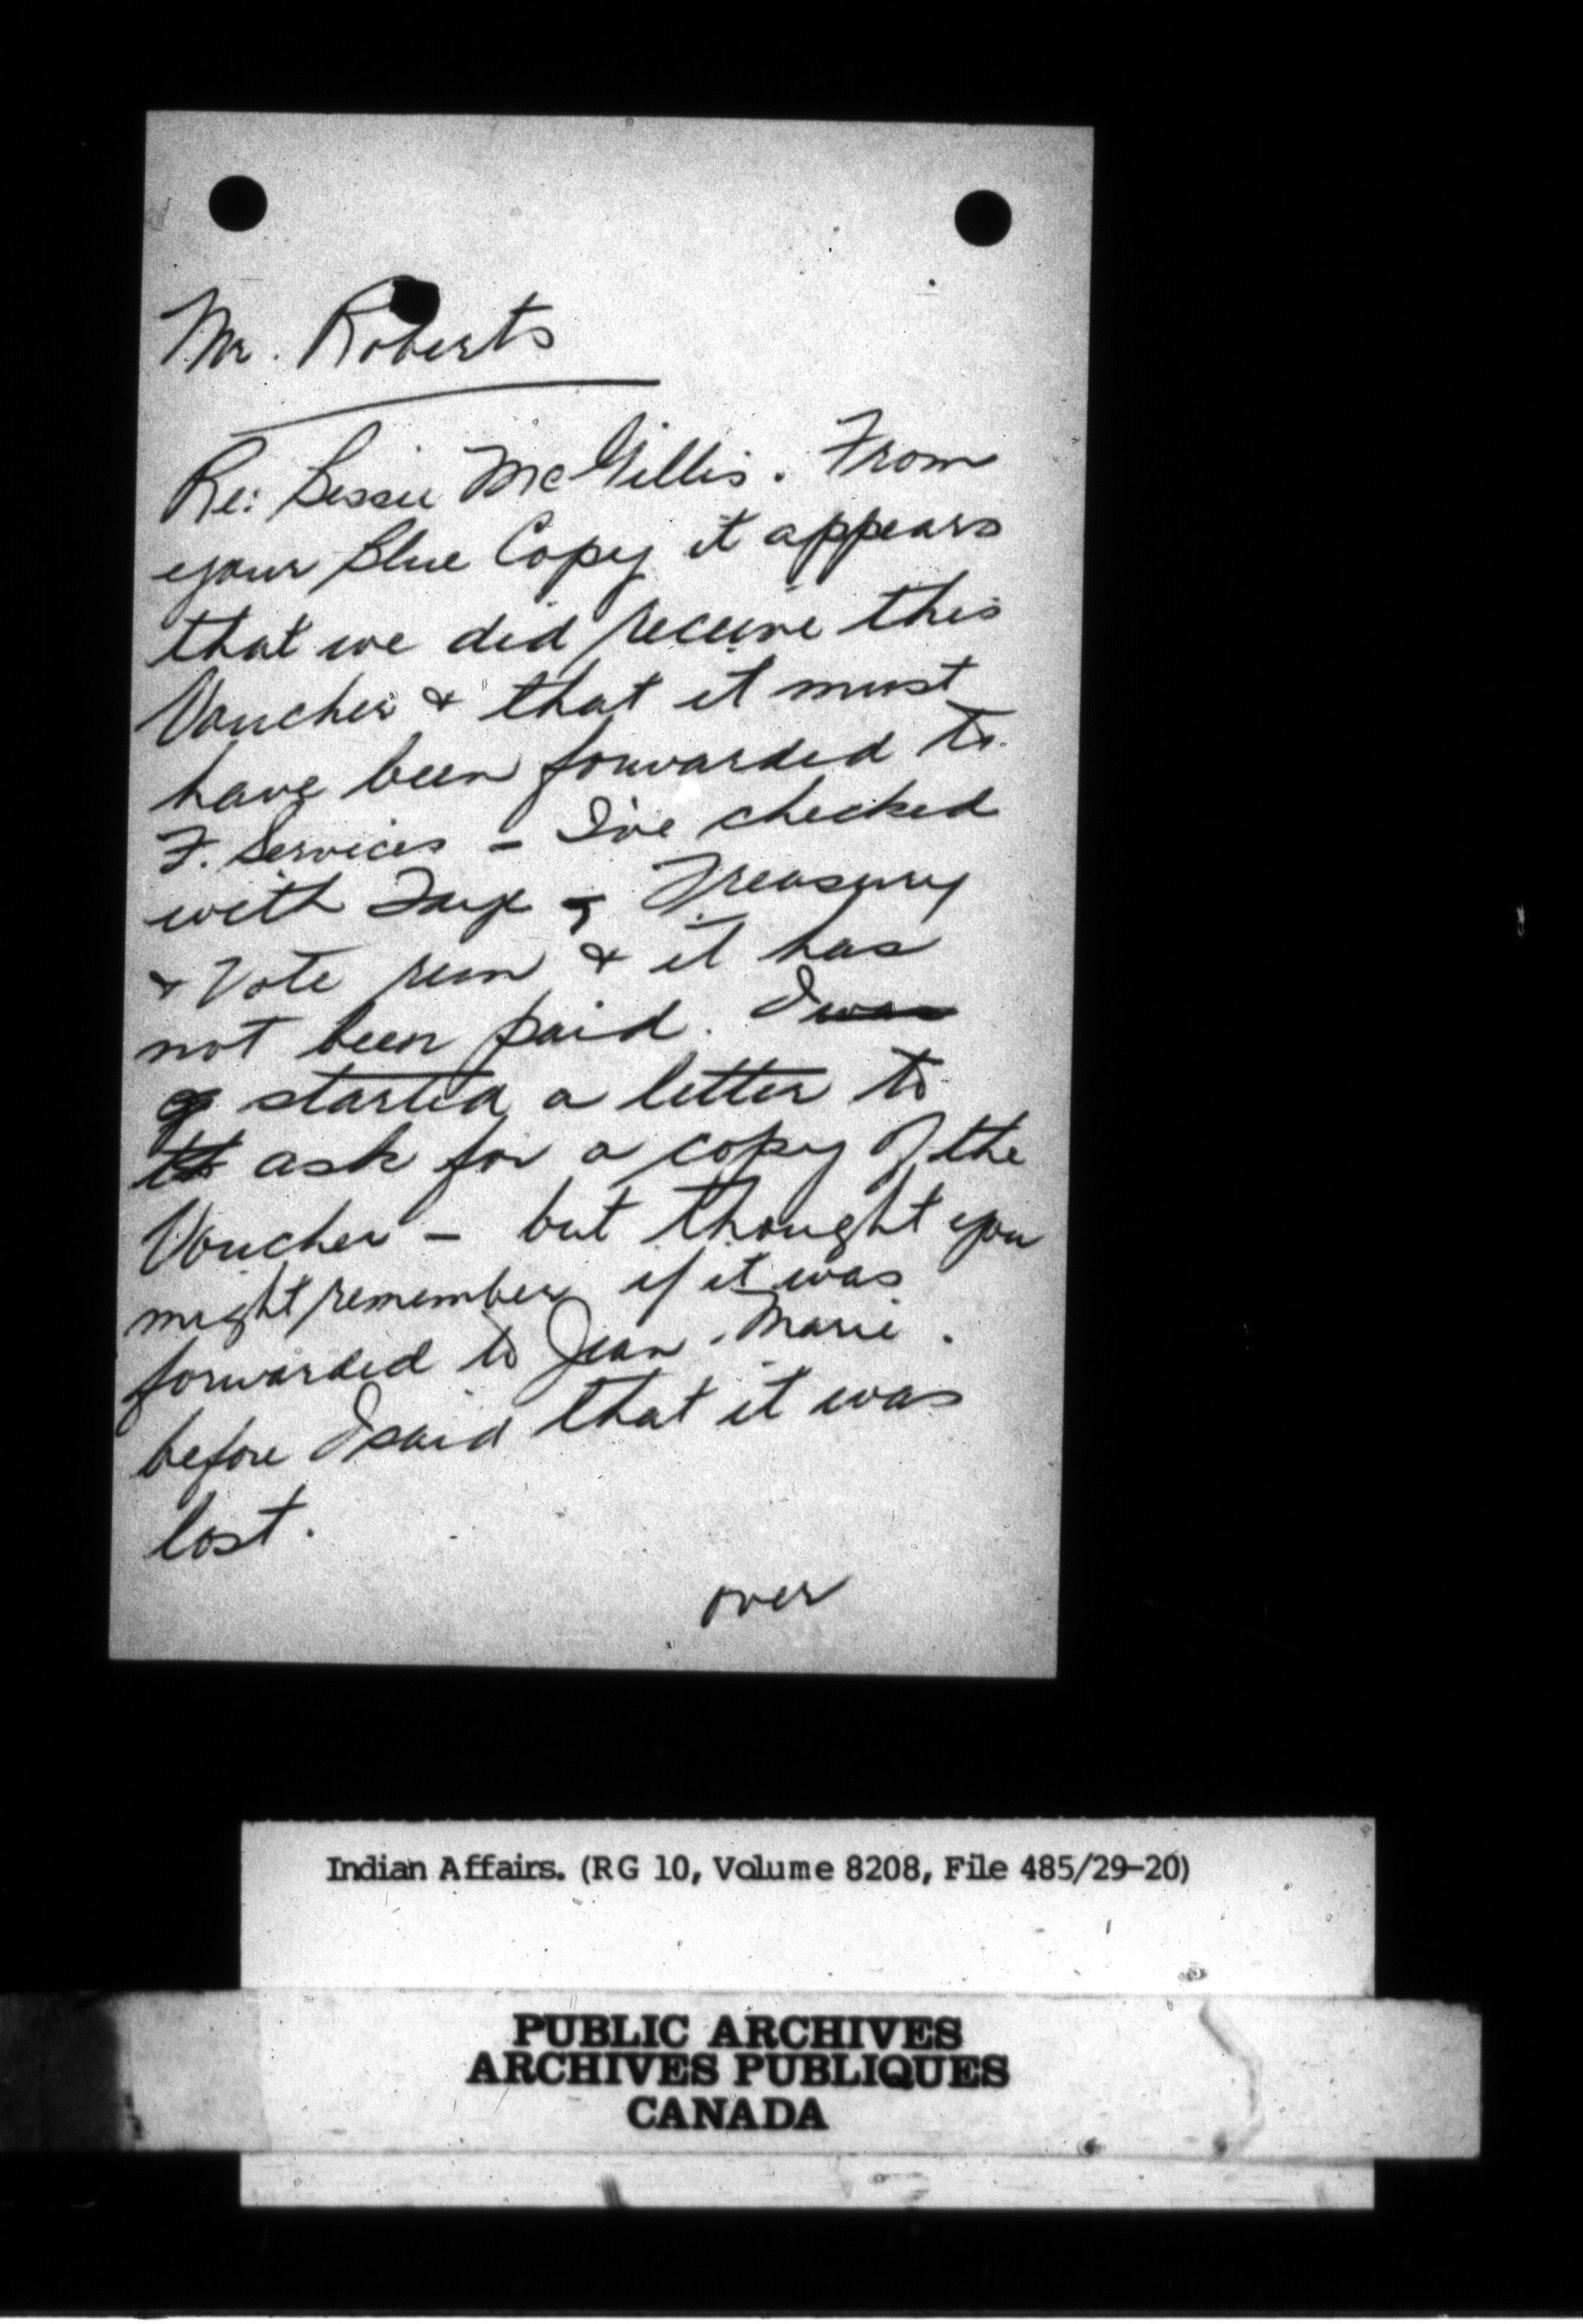 Mr. Roberts
Re: Bessie McGillis. From
your Blue Copy it appears
that we did receive this
Voucher & that it must
have been forwarded to
F. Services - I've checked
with - Treasury
& Vote run & it has
not been paid. I was
started a letter to
ask for a copy of the
Voucher - but thought you
might remember if it was
forwarded to Jean Marie.
before I said that it was
lost.
over
Indian Affairs. (RG 10, Volume 8208, File 485/29-20)
PUBLIC ARCHIVES
ARCHIVES PUBLIQUES
CANADA